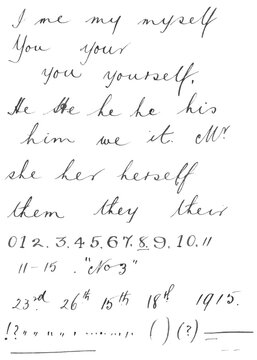 I me my myself
You your
you yourself.
He He he he his
him we it. Mr.
she her herself
them they their
0 1 2. 3. 4. 5. 6. 7. 8. 9. 10. 11
11 - 15 . "No 3"
23rd 26th 15th 18th 1915.
!? " " " " " . ............ ( ) (?)